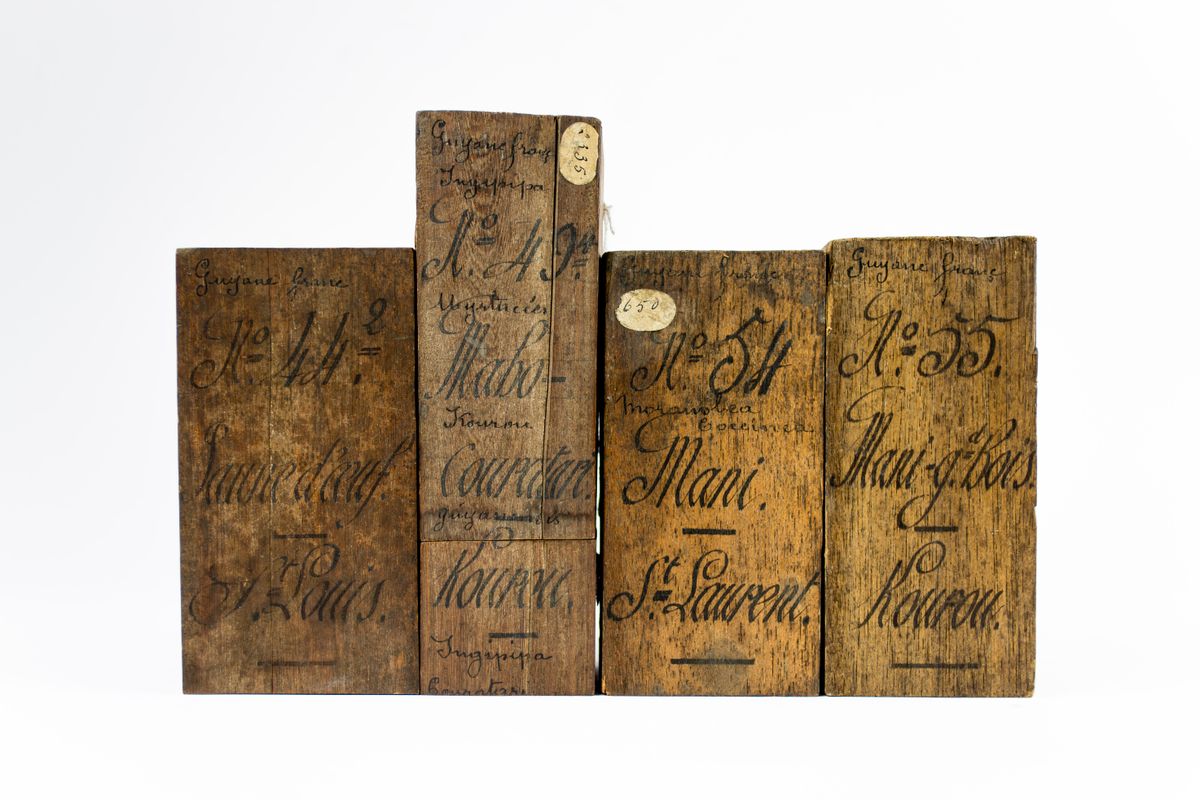 Guyane franc
No. 44.2
Jaune d'œuf.
St. Louis.
Guyane franç
Ingipipa
135
No. 49.
Mabo-
Kourou
Couratari
guyanensis
Kourou.
Ingipipa
Couratari
Guyane franç
650
No. 54
Moronobea
Coccinea
Mani.
St. Laurent.
Guyane franç
No. 55.
Mani-gd. Bois.
Kourou.